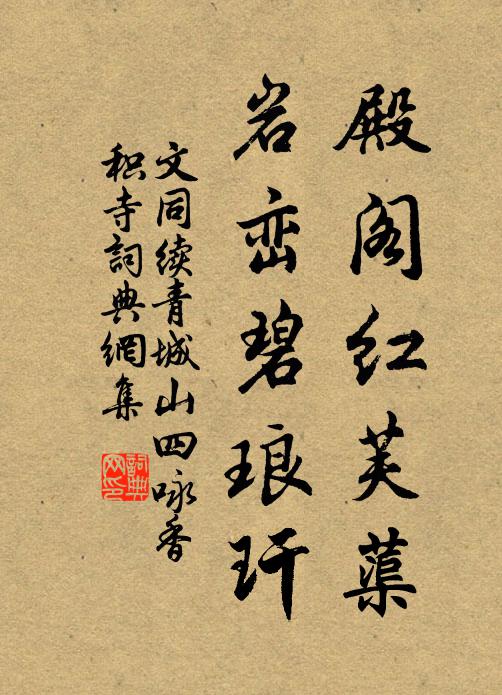 殿阁红芙蕖
岩峦碧琅玕
文同续青城山四咏香
积寺詞典網集
詞典
网印